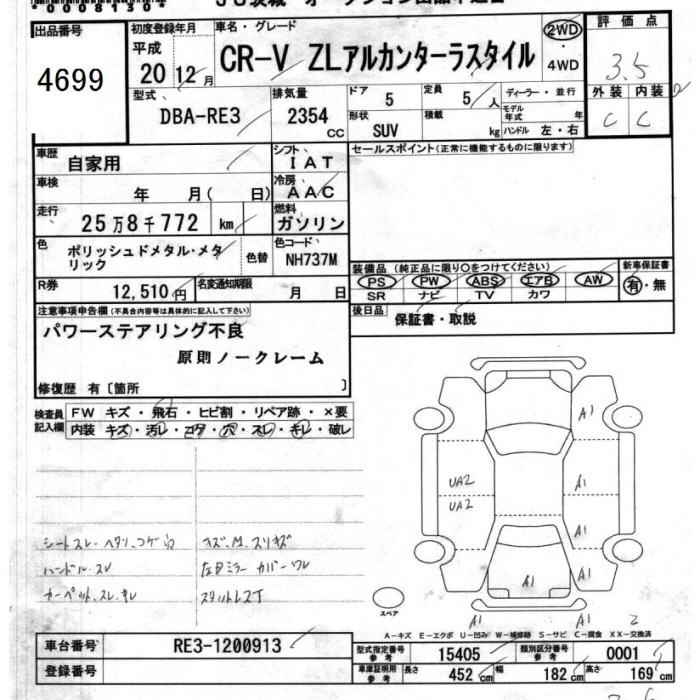 *0008130*
出品番号
4699
初度登録年月
平成
20 12月
車名・グレード
CR-V ZLアルカンターラスタイル
2WD
・
4WD
評価点
3.5
外装 内装
C C
型式
DBA-RE3
排気量
2354 CC
ドア
5
定員
5 人
形状
SUV
積載
kg
ディーラー・並行
モデル年式 年
ハンドル 左・右
車歴
自家用
シフト
IAT
セールスポイント(正常に機能するものに限ります)
車検
年 月( 日)
冷房
AAC
走行
25万8千772 km
燃料
ガソリン
色
ポリッシュドメタル・メタ
リック
色替
色コード
NH737M
装備品(純正品に限り○をつけてください)
PS PW ABS エアB AW
SR ナビ TV カワ
新車保証書
有・無
R券
12,510円
名変通知期限
月 日
後日品
保証書・取説
注意事項申告欄(不具合内容等は具体的に記入して下さい)
パワーステアリング不良
原則ノークレーム
修復歴 有〔箇所 〕
検査員
記入欄
FW キズ・飛石・ヒビ割・リペア跡・×要
内装 キズ・汚レ・コゲ・穴・スレ・キレ・破レ
シートスレ・ヘタリ、コゲ穴
ハンドル・スレ
カーペット、スレ、キレ
キズ、M、スリキズ
左Dミラーカバーワレ
スタットレスT
A1
A1
A1
A1
A1
A1
A1
A1
UA2
UA2
2
スペア
A-キズ E-エクボ U-凹み W-補修跡 S-サビ C-腐食 XX-交換済
車台番号
RE3-1200913
登録番号
型式指定番号
参考
15405
類別区分番号
参考
0001
車庫証明用
参考
長さ
452 cm
幅
182 cm
高さ
169 cm